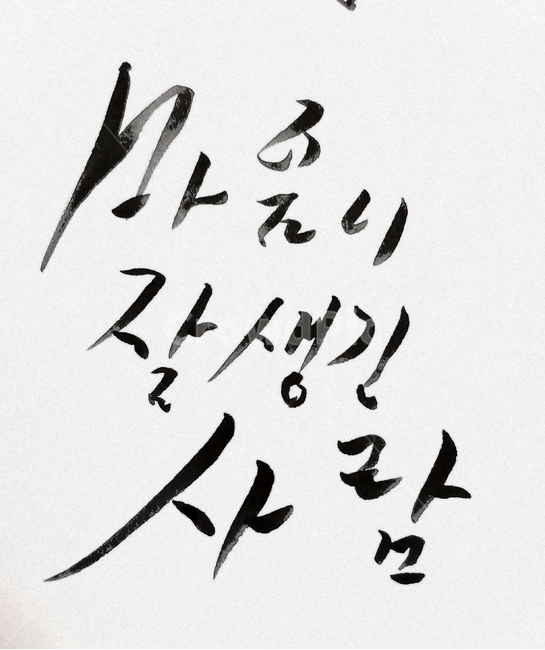 마음이
잘생긴
사람